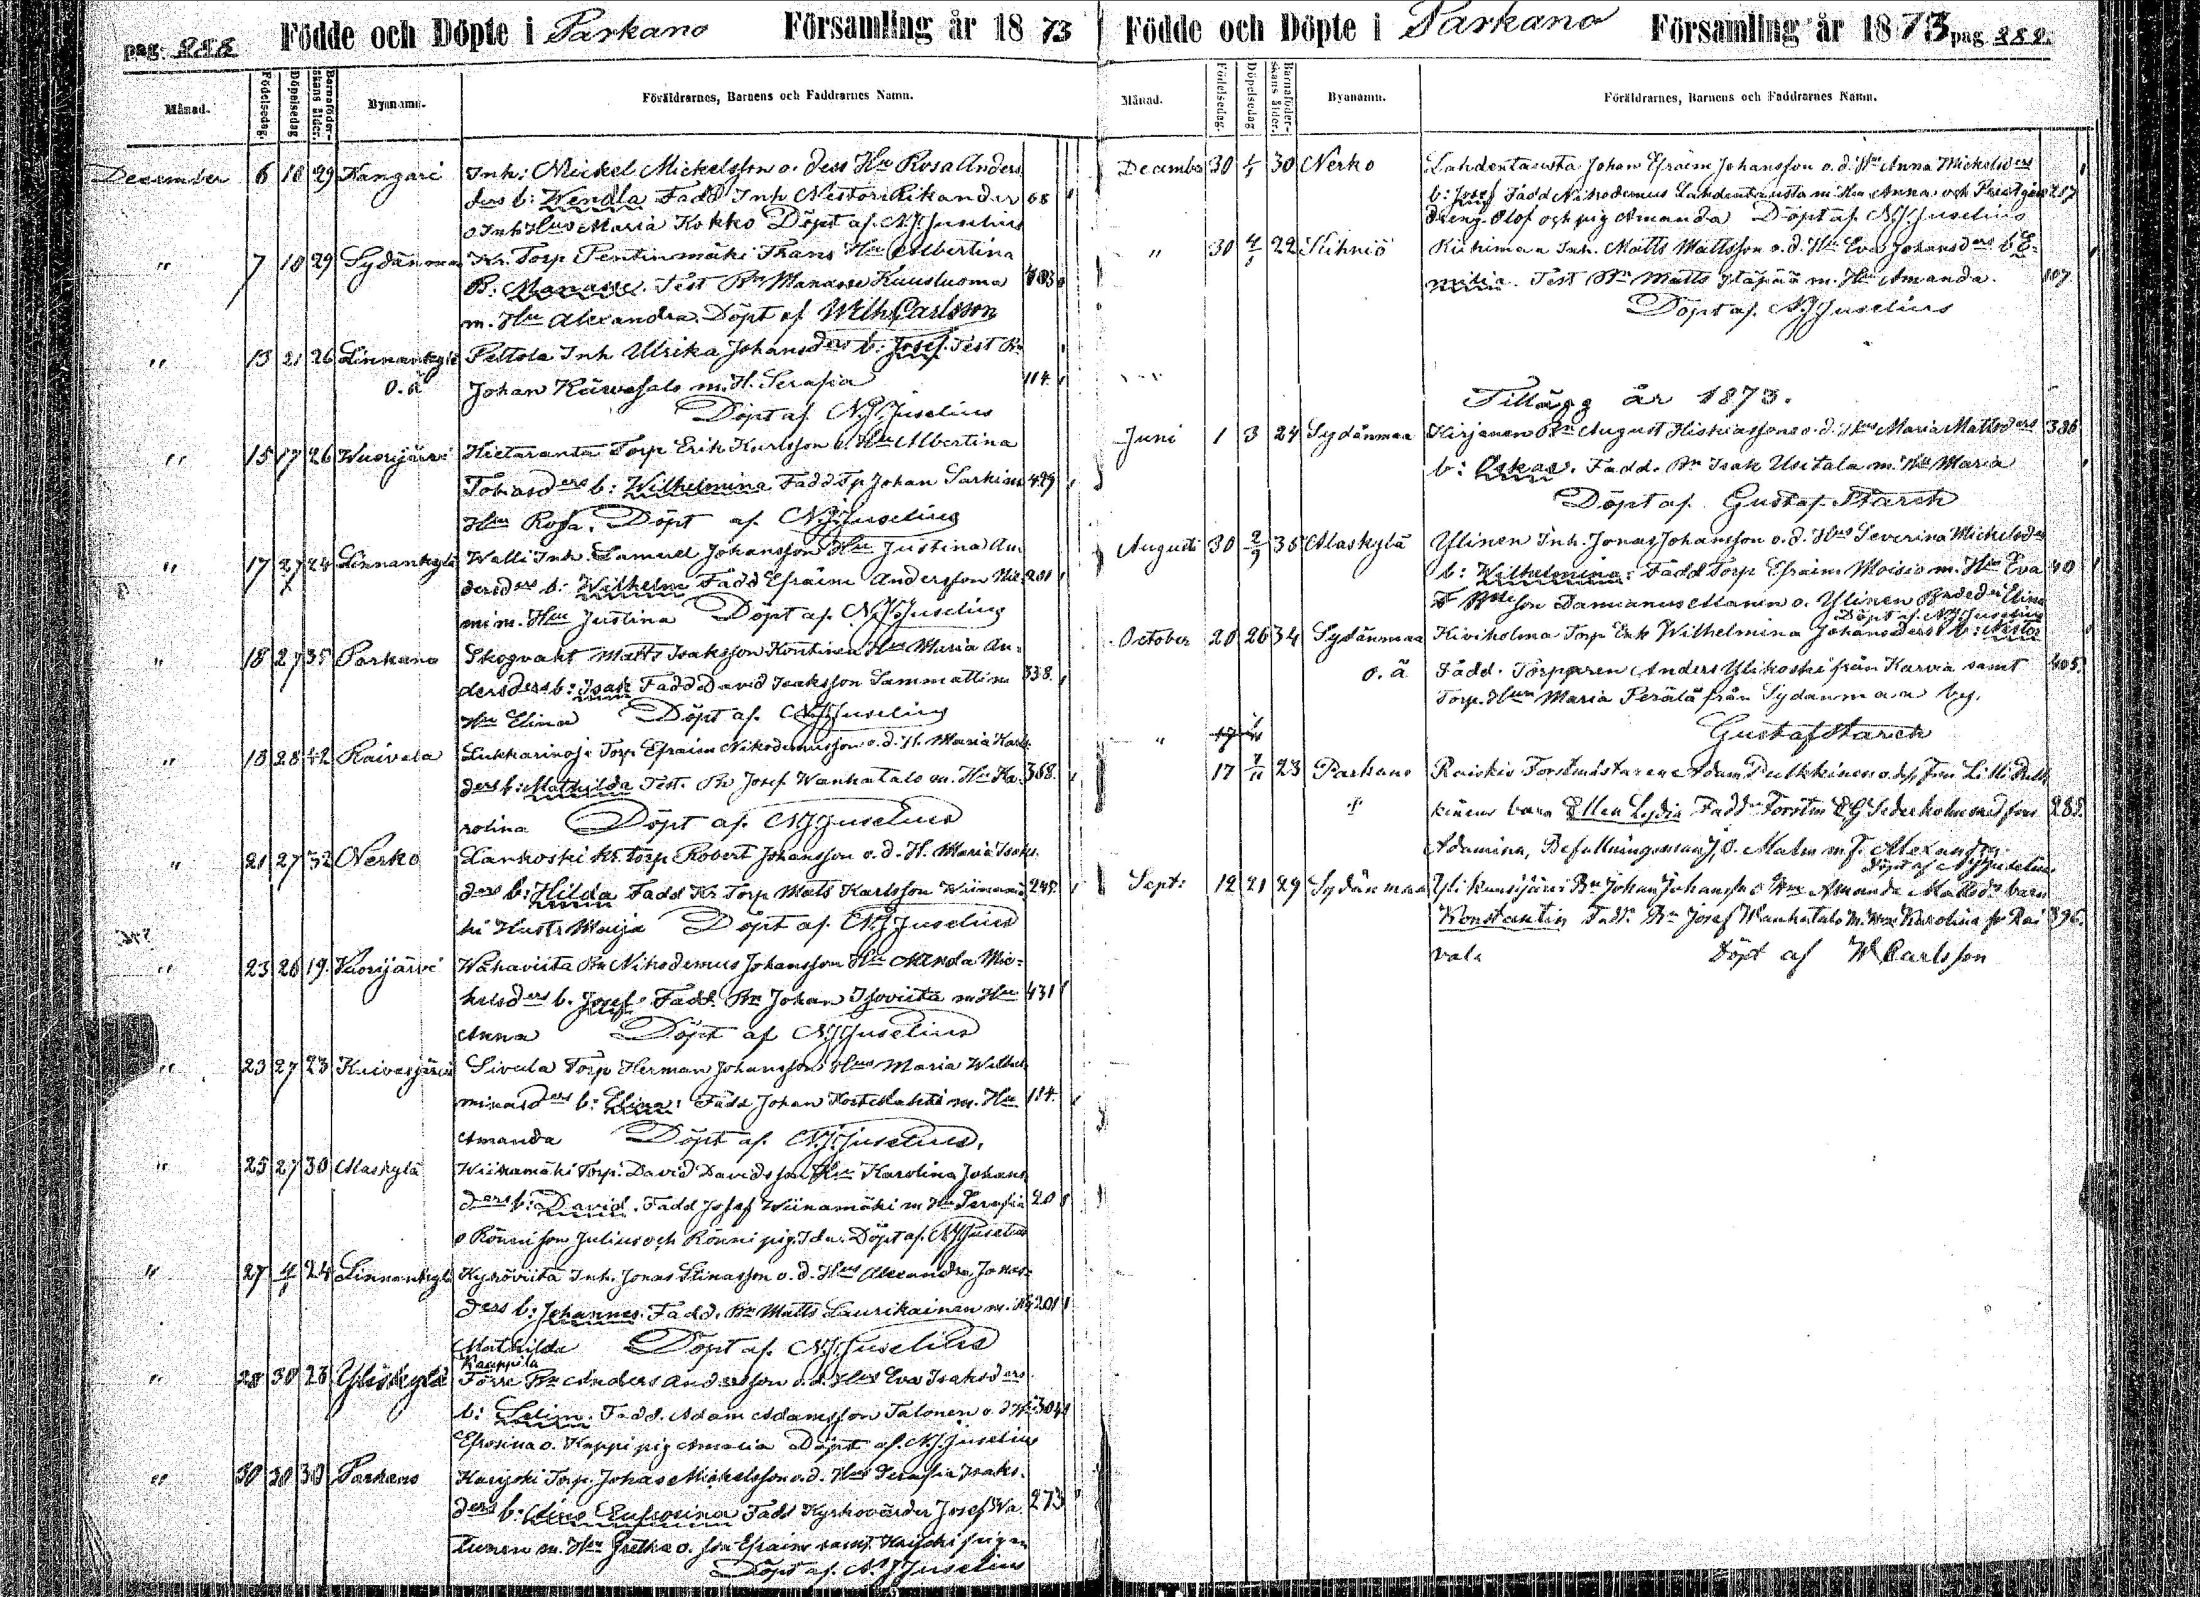 pag. 288
Födde och Döpte i Parkano Församling år 1873
Månad. Födelsedag. Döpelsedag Barnaföderskans ålder. Bynamn. Föräldrarnes, Barnens och Faddrarnes Namn.
December 6 18 29 Kangari Inh: Mickel Mickelsson o. dess Hu Rosa Anders
ders b: Wendla Fadd Inh Nestori Rikander 68
o Inh Hus Maria Kokko Döpt af. N.J. Juselius
" 7 18 29 Sydänmaa Kr. Torp Pentinmäki Frans Hu Albertina
B: Manasse. Test Bn Manasse Kuusluoma 403
m. Hu Alexandra. Döpt af Wilh. Carlsson
" 13 21 26 Linnankylä Peltola Inh Ulrika Johansders b: Josef. Test Bn
o. ä Johan Käwesalo m. H. Serafia 114.
Döpt af N.J. Juselius
" 15 17 26 Wuorijärvi Hietaranta Torp Erik Karlsson o. Hu Albertina
Tobiasders b: Wilhelmina Fadd Tp Johan Sarkinen 429
Hu Rosa. Döpt af. N.J. Juselius
" 17 27 24 Linnankylä Walli Inh. Samuel Johansson Hu Justina An
dersders b: Wilhelm Fadd Efraim Andersson 201
mi m. Hu Justina Döpt af. N.J. Juselius
" 18 27 35 Parkano Skogvakt Matts Isaksson Kontinen Hus Maria An-
dersders b: Isak Fadd David Isaksson Sammattinen 338.
Hu Elina Döpt af. N.J. Juselius
" 18 28 42 Raivala Lukkarinoja Torp Efraim Nikodemusson o. d. H. Maria Karls
ders b: Mathilda Test. Bn Josef Wanhatalo m. Hu Ka- 368.
rolina Döpt af. N.J. Juselius
" 21 27 32 Nerko Lankoski Kr. torp Robert Johansson o. d. H. Maria Isaks
ders b: Hilda Fadd Kr Torp Mats Karlsson Wiinamä 245.
ki Hustr Maija Döpt af. N.J. Juselius
" 23 26 19. Vuorijärvi Wahaviita Bn Nikodemus Johansson Hu Manda Mic-
helsders b. Josef Fadd. Bn Johan Isoviita m Hu 431
Anna Döpt af N.J. Juselius
" 23 27 23 Kuivasjärvi Sivula Torp Herman Johansson Hus Maria Wilhel
minasders b: Elina: Fadd Johan m. Hu 114.
Amanda Döpt af. N.J. Juselius.
" 25 27 30 Alaskylä Wiinamäki Torp. David Davidsson Hu Karolina Johans
ders b: David. Fadd Josef Wiinamäki m Hu Serafia 20
o Rönni son Julius och Rönni pig. Ida. Döpt af. N.J. Juselius
" 27 4/1 24 Linnankylä Kyröviita Inh. Jonas o. d. Hus Alexandra Jonas-
ders b: Johannes. Fadd. Bn Matts Laurikainen m. Hu 201
Mathilda Döpt af. N.J. Juselius
Kauppila
" 28 30 23 Yliskylä Törre Bn Anders Andersson o. d. Hus Eva Isaksders
b: Selim. Fadd. Adam Adamsson Talonen o. d Hu 304
Efrosina o. Kappi pig Amalia Döpt af. N.J. Juselius
" 30 30 30 Parkano Karijoki Torp. Johan Mickelsson o. d. Hus Serafia Isaks-
ders b: Aina Eufrosina Fadd Kyrkovärder Josef Wa- 273
tunen m. Hu Gretha o. son Efraim samt Karijoki pigan
Döpt af. N.J. Juselius
Födde och Döpte i Parkano Församling år 1873 pag. 282.
Månad. Födelsedag. Döpelsedag Barnaföderskans ålder. Byanamn. Föräldrarnes, Barnens och Faddrarnes Namn.
December 30 30 Nerko Lahdentausta Johan Efraim Johansson o. d. Hus Anna Mickelsders
b: Josef Fadd Nikodemus Lahdentausta m Hu Anna och 217
dreng Olof och pig Amanda Döpt af. N.J. Juselius
" 30 4/1 22 Kihniö Riihimaa Inh. Matts Mattsson o. d. Hu Eva Johansders b: E-
milia. Test Bn Matts Itäpää m. Hu Amanda. 107.
Döpt af. N.J. Juselius
Tillägg år 1873.
Juni 1 3 24 Sydänmaa Kirjanen Bn August Hiskiasson o. d. Hus Maria Mattsders 386
b: Oskar. Fadd. Bn Isak Usitalo m. Hu Maria
Döpt af. Gustaf Starck
Augusti 30 2/9 35 Alaskylä Ylinen Inh. Jonas Johansson o. d. Hus Severina Mickelsders
b: Wilhelmina: Fadd Torp Efraim Moisio m. Hu Eva 40
Bn son Damianus Manin o. Ylinen Bnded Elina
Döpt af. N.J. Juselius
October 20 26 34 Sydänmaa Kiviholma Torp Enk Wilhelmina Johansders b: Nestor
o. ä Fadd. Torpparen Anders Ylikoski från Karvia samt 405.
Torp. Hun Maria Perälä från Sydänmaa by.
Gustaf Starck
" 17 7/11 23 Parkano Raiskio Forstmästaren Adam Pulkkinen o. dess fru Lilli Pulk
" kinens barn Ellen Lydia Fadd. Forstm E G Sederholm med fru 285.
Adamina, Befallningsman J, O. Malm m f. Alexandra.
Döpt af N.J. Juselius
Sept: 12 21 29 Sydänmaa Bn Johan Johansson o Hu Amanda Mattsdr barn
Konstantin Fadd. Bn Josef Wanhatalo m Hu Karolina fr Rai 396.
vala Döpt af W Carlsson